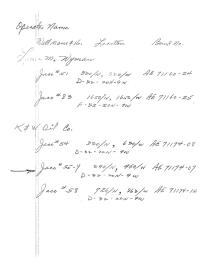 Operator Name
Well Name & No. Location Bond No.
M. Wyman
Jas # 51 330/N, 330/W AE 71160-24
D-32-20N-9W
Jas # 53 1650/N, 1650/W AE 71160-25
F-32-20N-9W
K & W Oil Co.
Jas # 54 330/N, 630/W AE 71174-08
D-32-20N-9W
Jas # 55-Y 290/N, 960/W AE 71174-07
D-32-20N-9W
Jas # 58 920/N, 363/W AE 71174-10
D-32-20N-9W